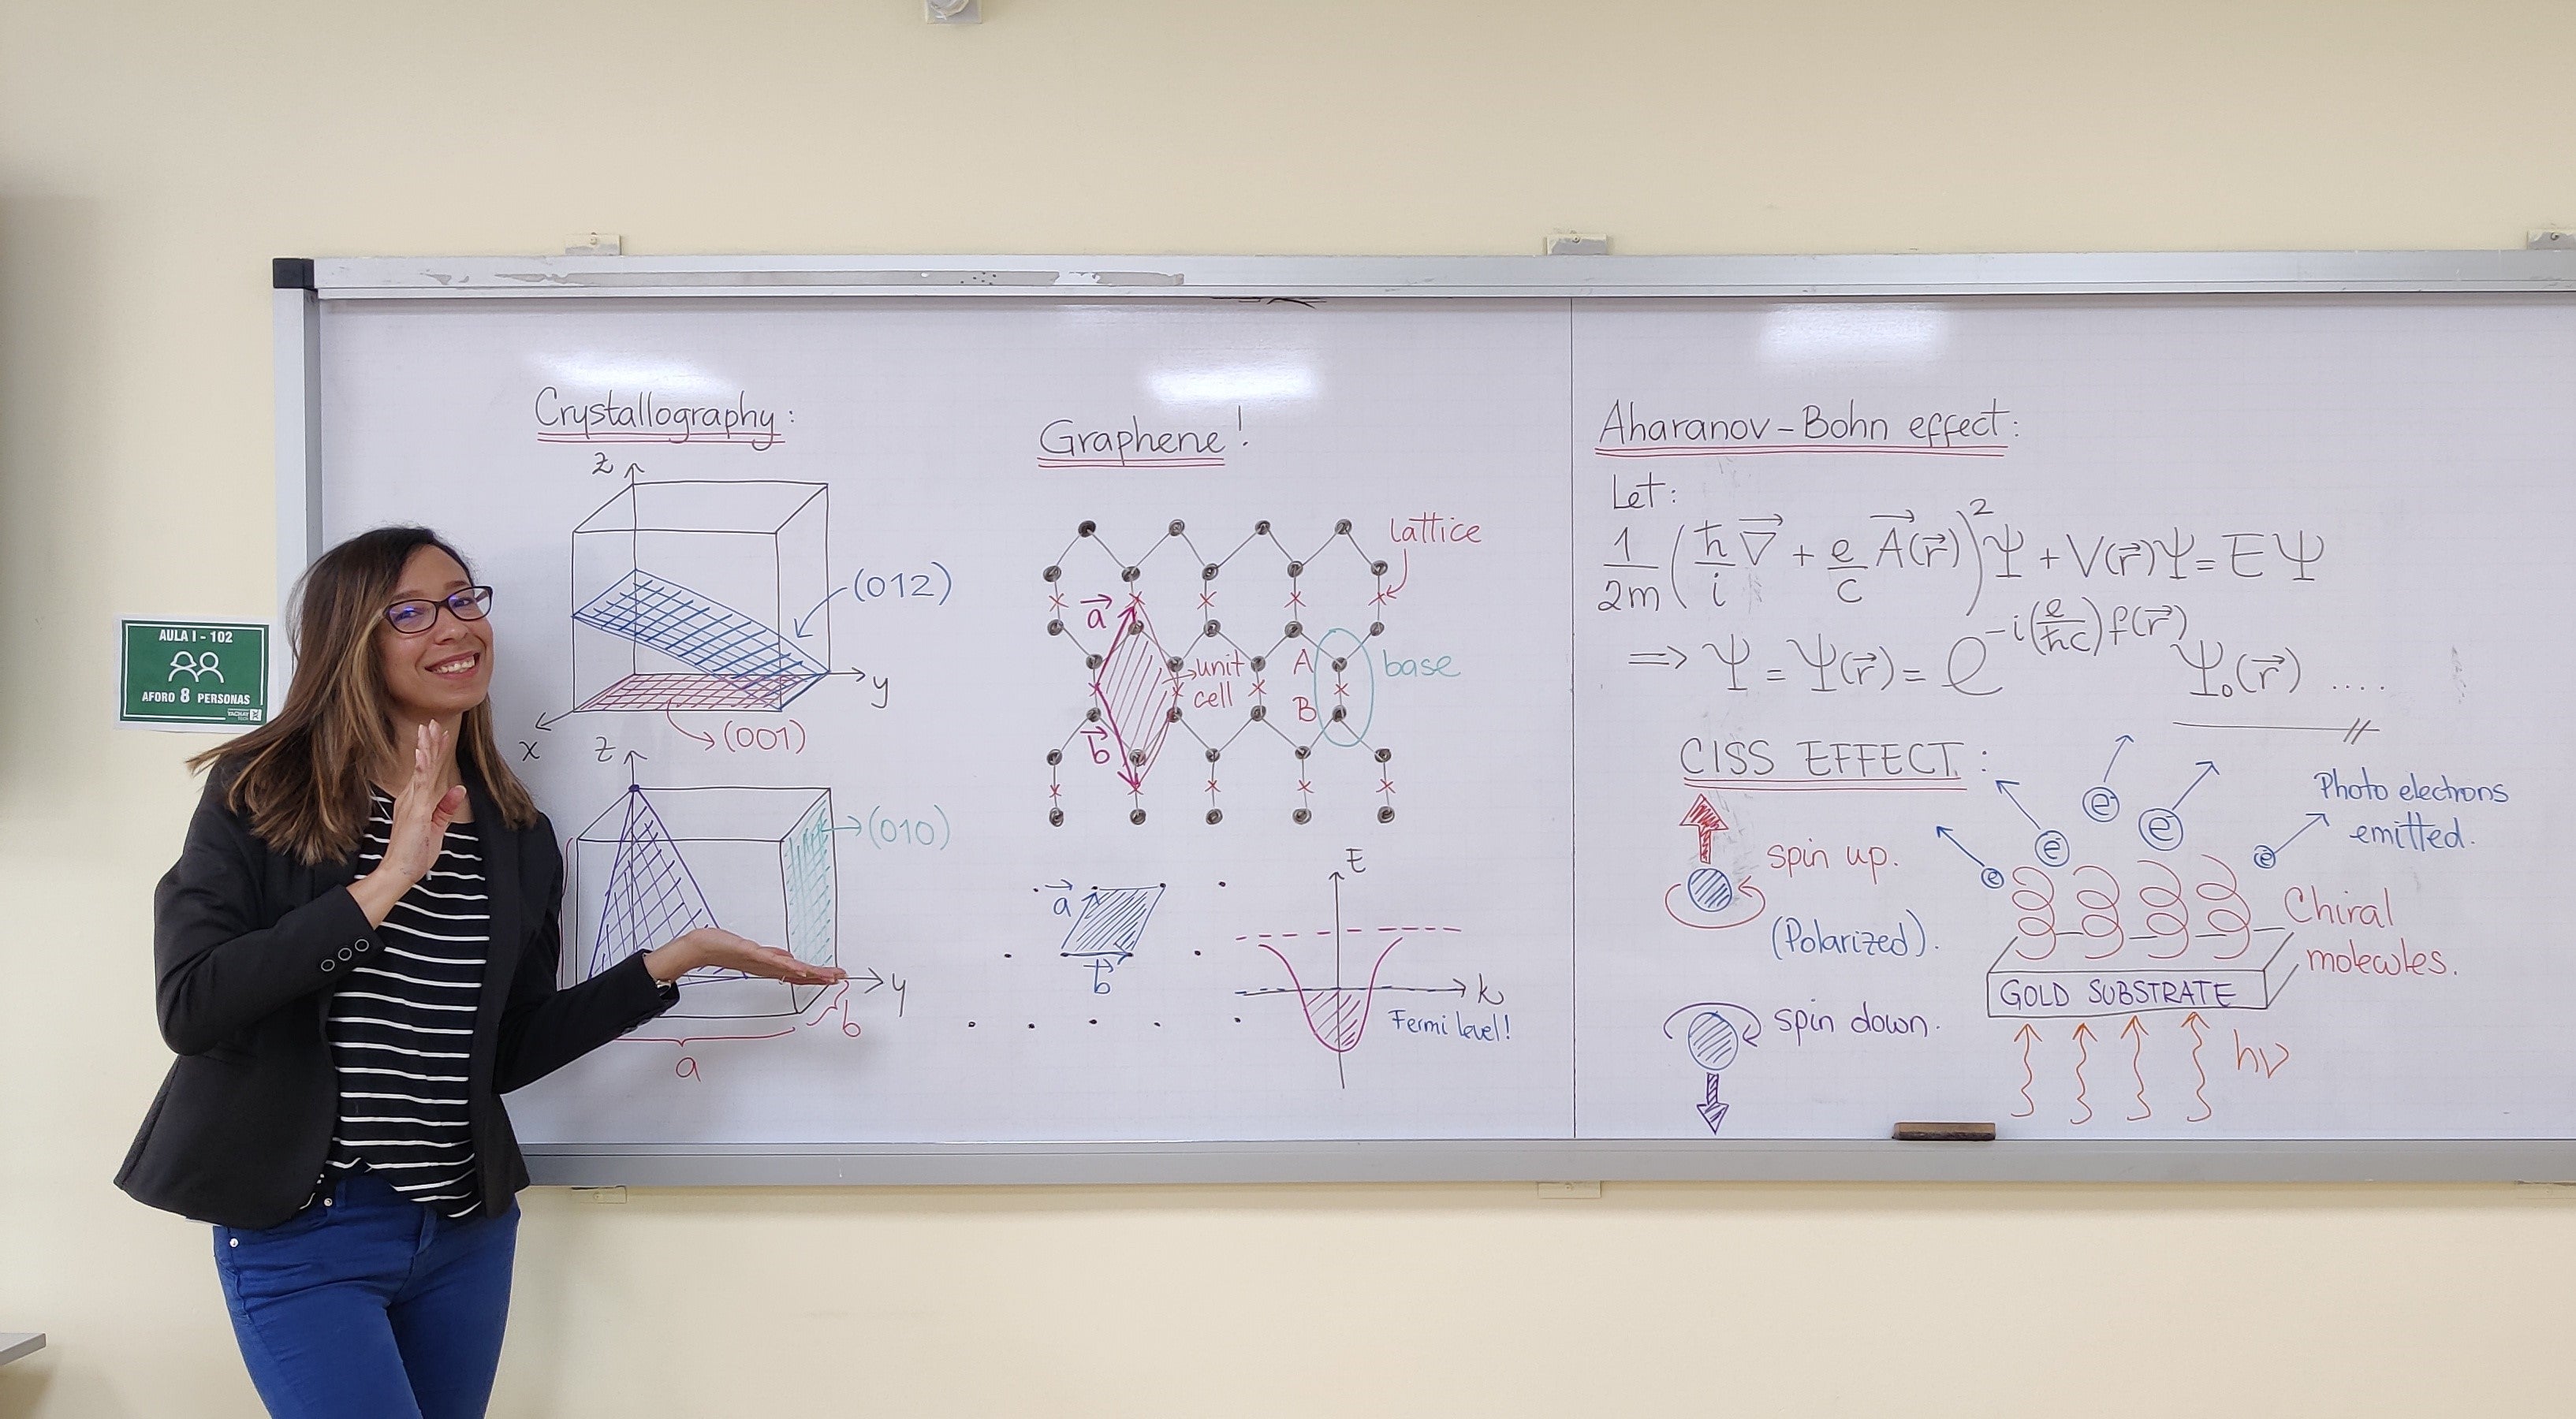 AULA I - 102
AFORO 8 PERSONAS
YACHAY
Crystallography:
z
(012)
y
x
(001)
z
(010)
y
b
a
Graphene!
lattice
a⃗
unit
cell
A
B
base
b⃗
a⃗
b⃗
E
k
Fermi level!
Aharanov-Bohn effect:
Let:
1/2m (ħ/i ∇⃗ + e/c A⃗(r⃗))² Ψ + V(r⃗)Ψ = EΨ
⇒ Ψ = Ψ(r⃗) = e^{-i(e/ħc)f(r⃗)} Ψ₀(r⃗) ....
CISS EFFECT:
spin up.
(Polarized).
spin down.
e⁻ e⁻ e⁻ e e
Photo electrons
emitted.
Chiral
molecules.
GOLD SUBSTRATE
hν